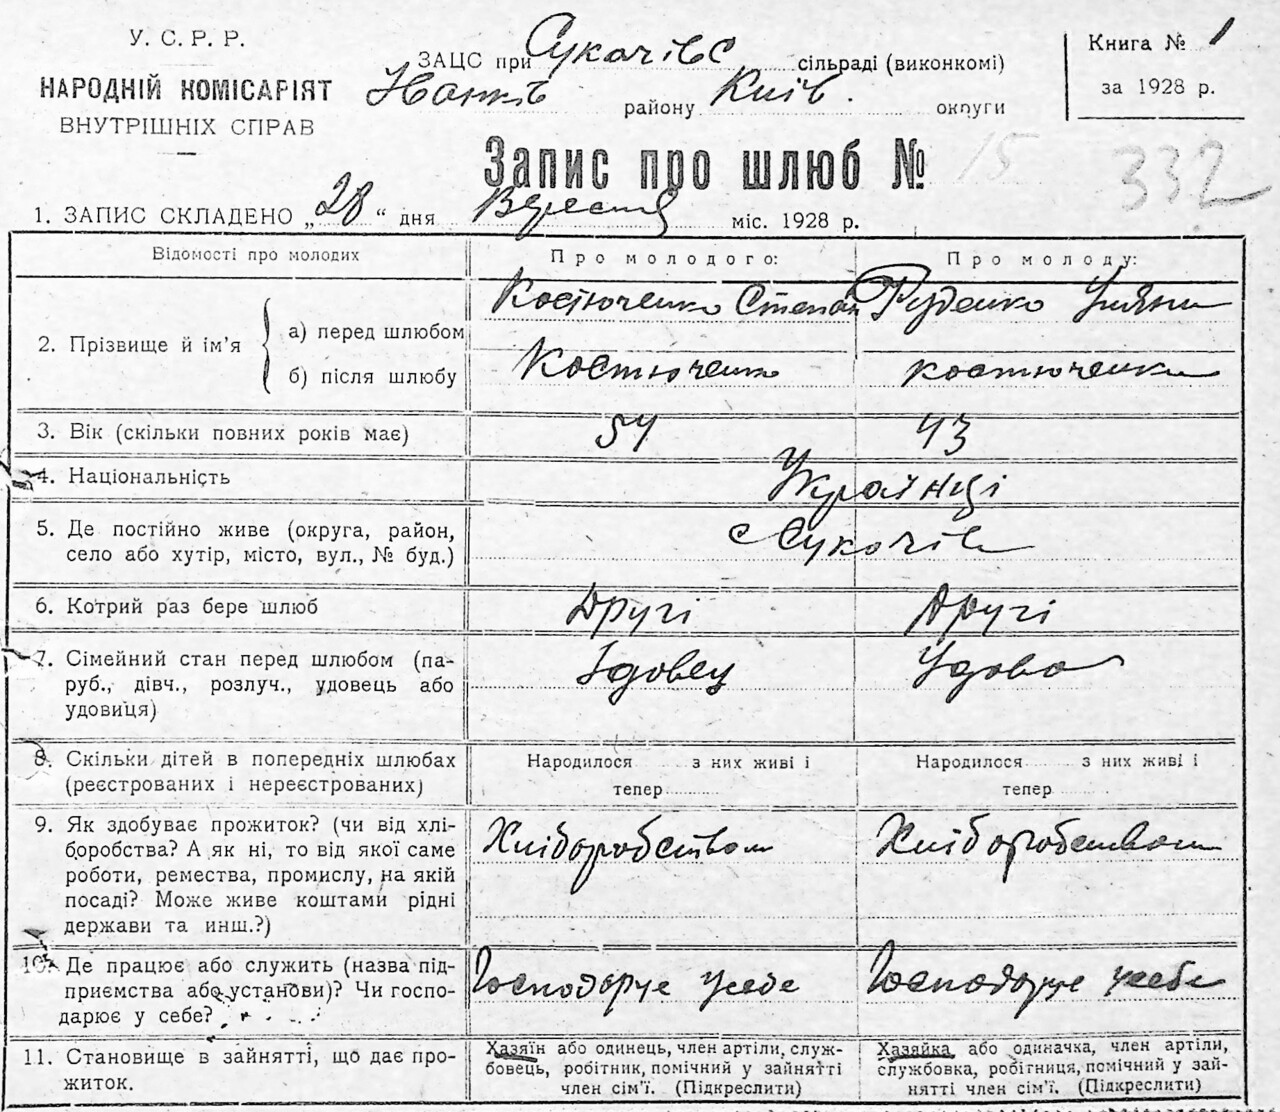 У. С. Р. Р.
НАРОДНІЙ КОМІСАРІЯТ
ВНУТРІШНІХ СПРАВ
ЗАЦС при Сукачівс сільраді (виконкомі)
району Київ. округи
Книга № 1
за 1928 р.
Запис про шлюб № 15
332
1. ЗАПИС СКЛАДЕНО „28“ дня Вересня міс. 1928 р.
Відомості про молодих
Про молодого:
Про молоду:
2. Прізвище й ім’я
а) перед шлюбом
Костюченко Степан
Руденко Уляни
б) після шлюбу
Костюченко
Костюченко
3. Вік (скільки повних років має)
54
43
4. Національність
Українці
5. Де постійно живе (округа, район,
село або хутір, місто, вул., № буд.)
с Сукачів
6. Котрий раз бере шлюб
Другі
Другі
7. Сімейний стан перед шлюбом (па-
руб., дівч., розлуч., удовець або
удовиця)
Удовец
Удова
8. Скільки дітей в попередніх шлюбах
(реєстрованих і нереєстрованих)
Народилося з них живі і
тепер
Народилося з них живі і
тепер
9. Як здобуває прожиток? (чи від хлі-
боробства? А як ні, то від якої саме
роботи, ремества, промислу, на якій
посаді? Може живе коштами рідні
держави та инш.?)
Хліборобством
Хліборобством
10. Де працює або служить (назва під-
приємства або установи)? Чи госпо-
дарює у себе?
Господарує у себе
Господарує у себе
11. Становище в зайнятті, що дає про-
житок.
Хазяїн або одинець, член артіли, служ-
бовець, робітник, помічний у зайнятті
член сім’ї. (Підкреслити)
Хазяйка або одиначка, член артіли,
службовка, робігниця, помічний у зай-
нятті член сім’ї. (Підкреслити)